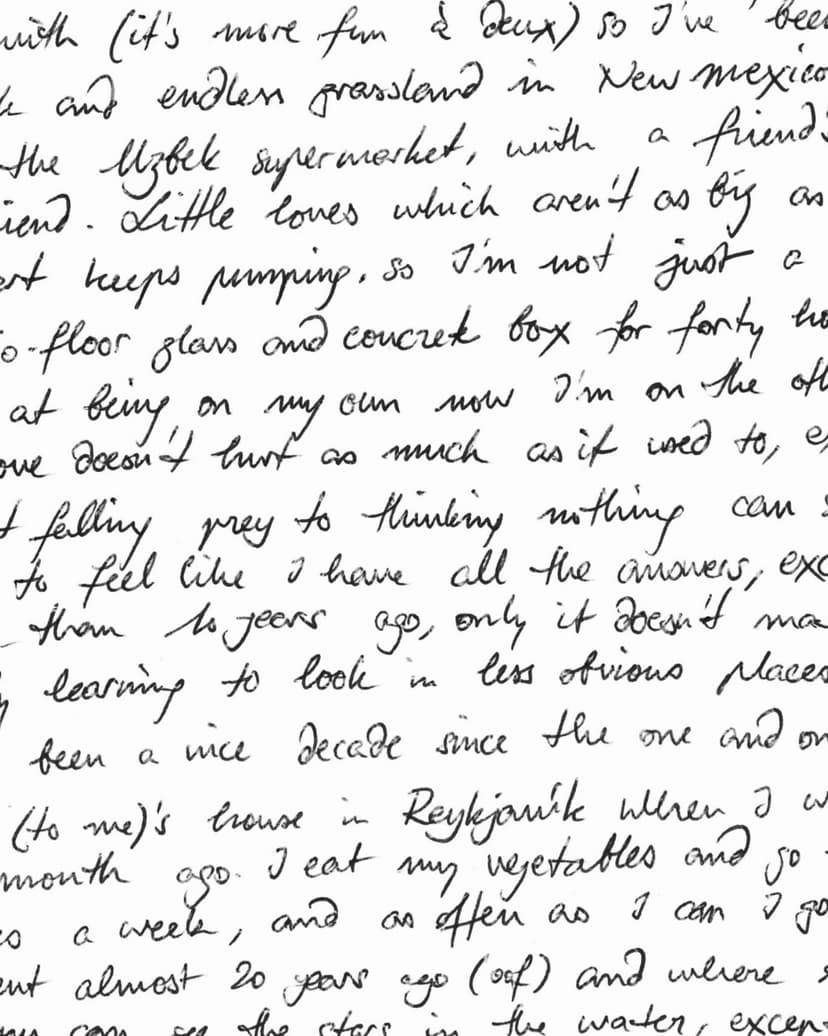 with (it's more fun à deux) so I've been
and endless grassland in New mexico
the Uzbek supermarket, with a friend's
iend. Little loves which aren't as big as
ert keeps pumping, so I'm not just a
o-floor glass and concrete box for forty ho
at being on my own now I'm on the oth
ove doesn't hurt as much as it used to, ex
t falling prey to thinking nothing can s
to feel like I have all the answers, exc
than 10 years ago, only it doesn't ma
learning to look in less obvious places
been a nice decade since the one and on
(to me)'s house in Reykjavík when I w
month ago. I eat my vegetables and go
es a week, and as often as I can I go
ent almost 20 years ago (oof) and where s
can see the stars in the water, except